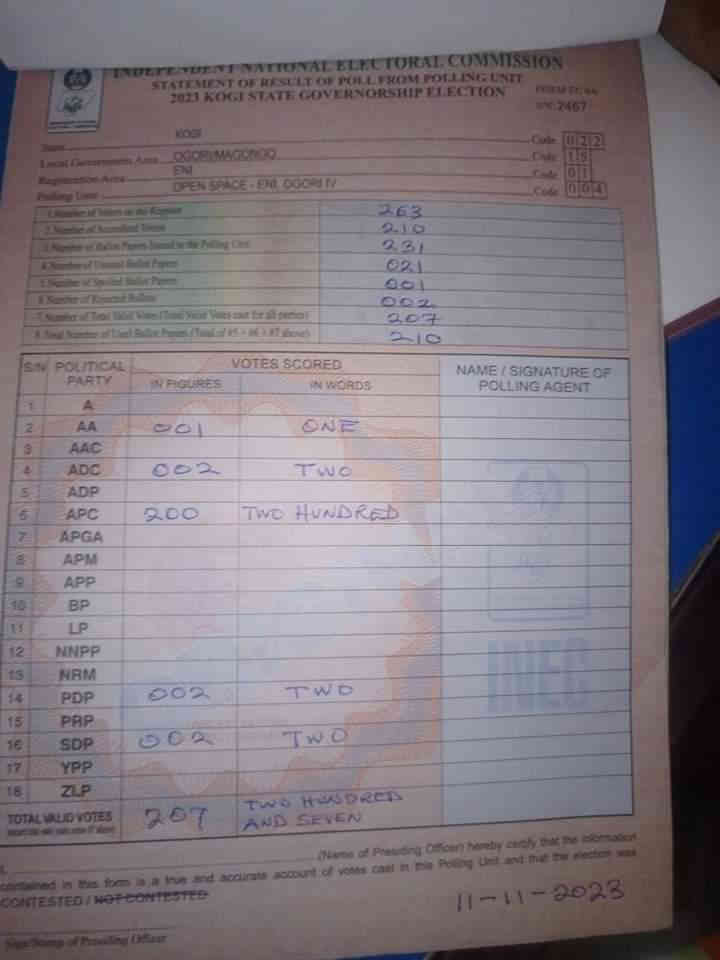 INDEPENDENT NATIONAL ELECTORAL COMMISSION
STATEMENT OF RESULT OF POLL FROM POLLING UNIT
2023 KOGI STATE GOVERNORSHIP ELECTION
S/N: 2467
State KOGI Code 022
Local Government Area OGORI/MAGONGO Code 15
Registration Area ENI Code 01
Polling Unit OPEN SPACE - ENI, OGORI IV Code 004
1. Number of Voters on the Register 263
2. Number of Accredited Voters 210
3. Number of Ballot Papers Issued to the Polling Unit 231
4. Number of Unused Ballot Papers 021
5. Number of Spoiled Ballot Papers 001
6. Number of Rejected Ballots 002
7. Number of Total Valid Votes (Total Valid Votes cast for all parties) 207
8. Total Number of Used Ballot Papers (Total of #5 + #6 + #7 above) 210
S/N POLITICAL PARTY VOTES SCORED NAME / SIGNATURE OF POLLING AGENT
IN FIGURES IN WORDS
1 A
2 AA 001 ONE
3 AAC
4 ADC 002 TWO
5 ADP
6 APC 200 TWO HUNDRED
7 APGA
8 APM
9 APP
10 BP
11 LP
12 NNPP
13 NRM
14 PDP 002 TWO
15 PRP
16 SDP 002 TWO
17 YPP
18 ZLP
TOTAL VALID VOTES 207 TWO HUNDRED AND SEVEN
INEC
I, (Name of Presiding Officer) hereby certify that the information
contained in this form is a true and accurate account of votes cast in this Polling Unit and that the election was
CONTESTED / NOT CONTESTED
11-11-2023
Sign/Stamp of Presiding Officer